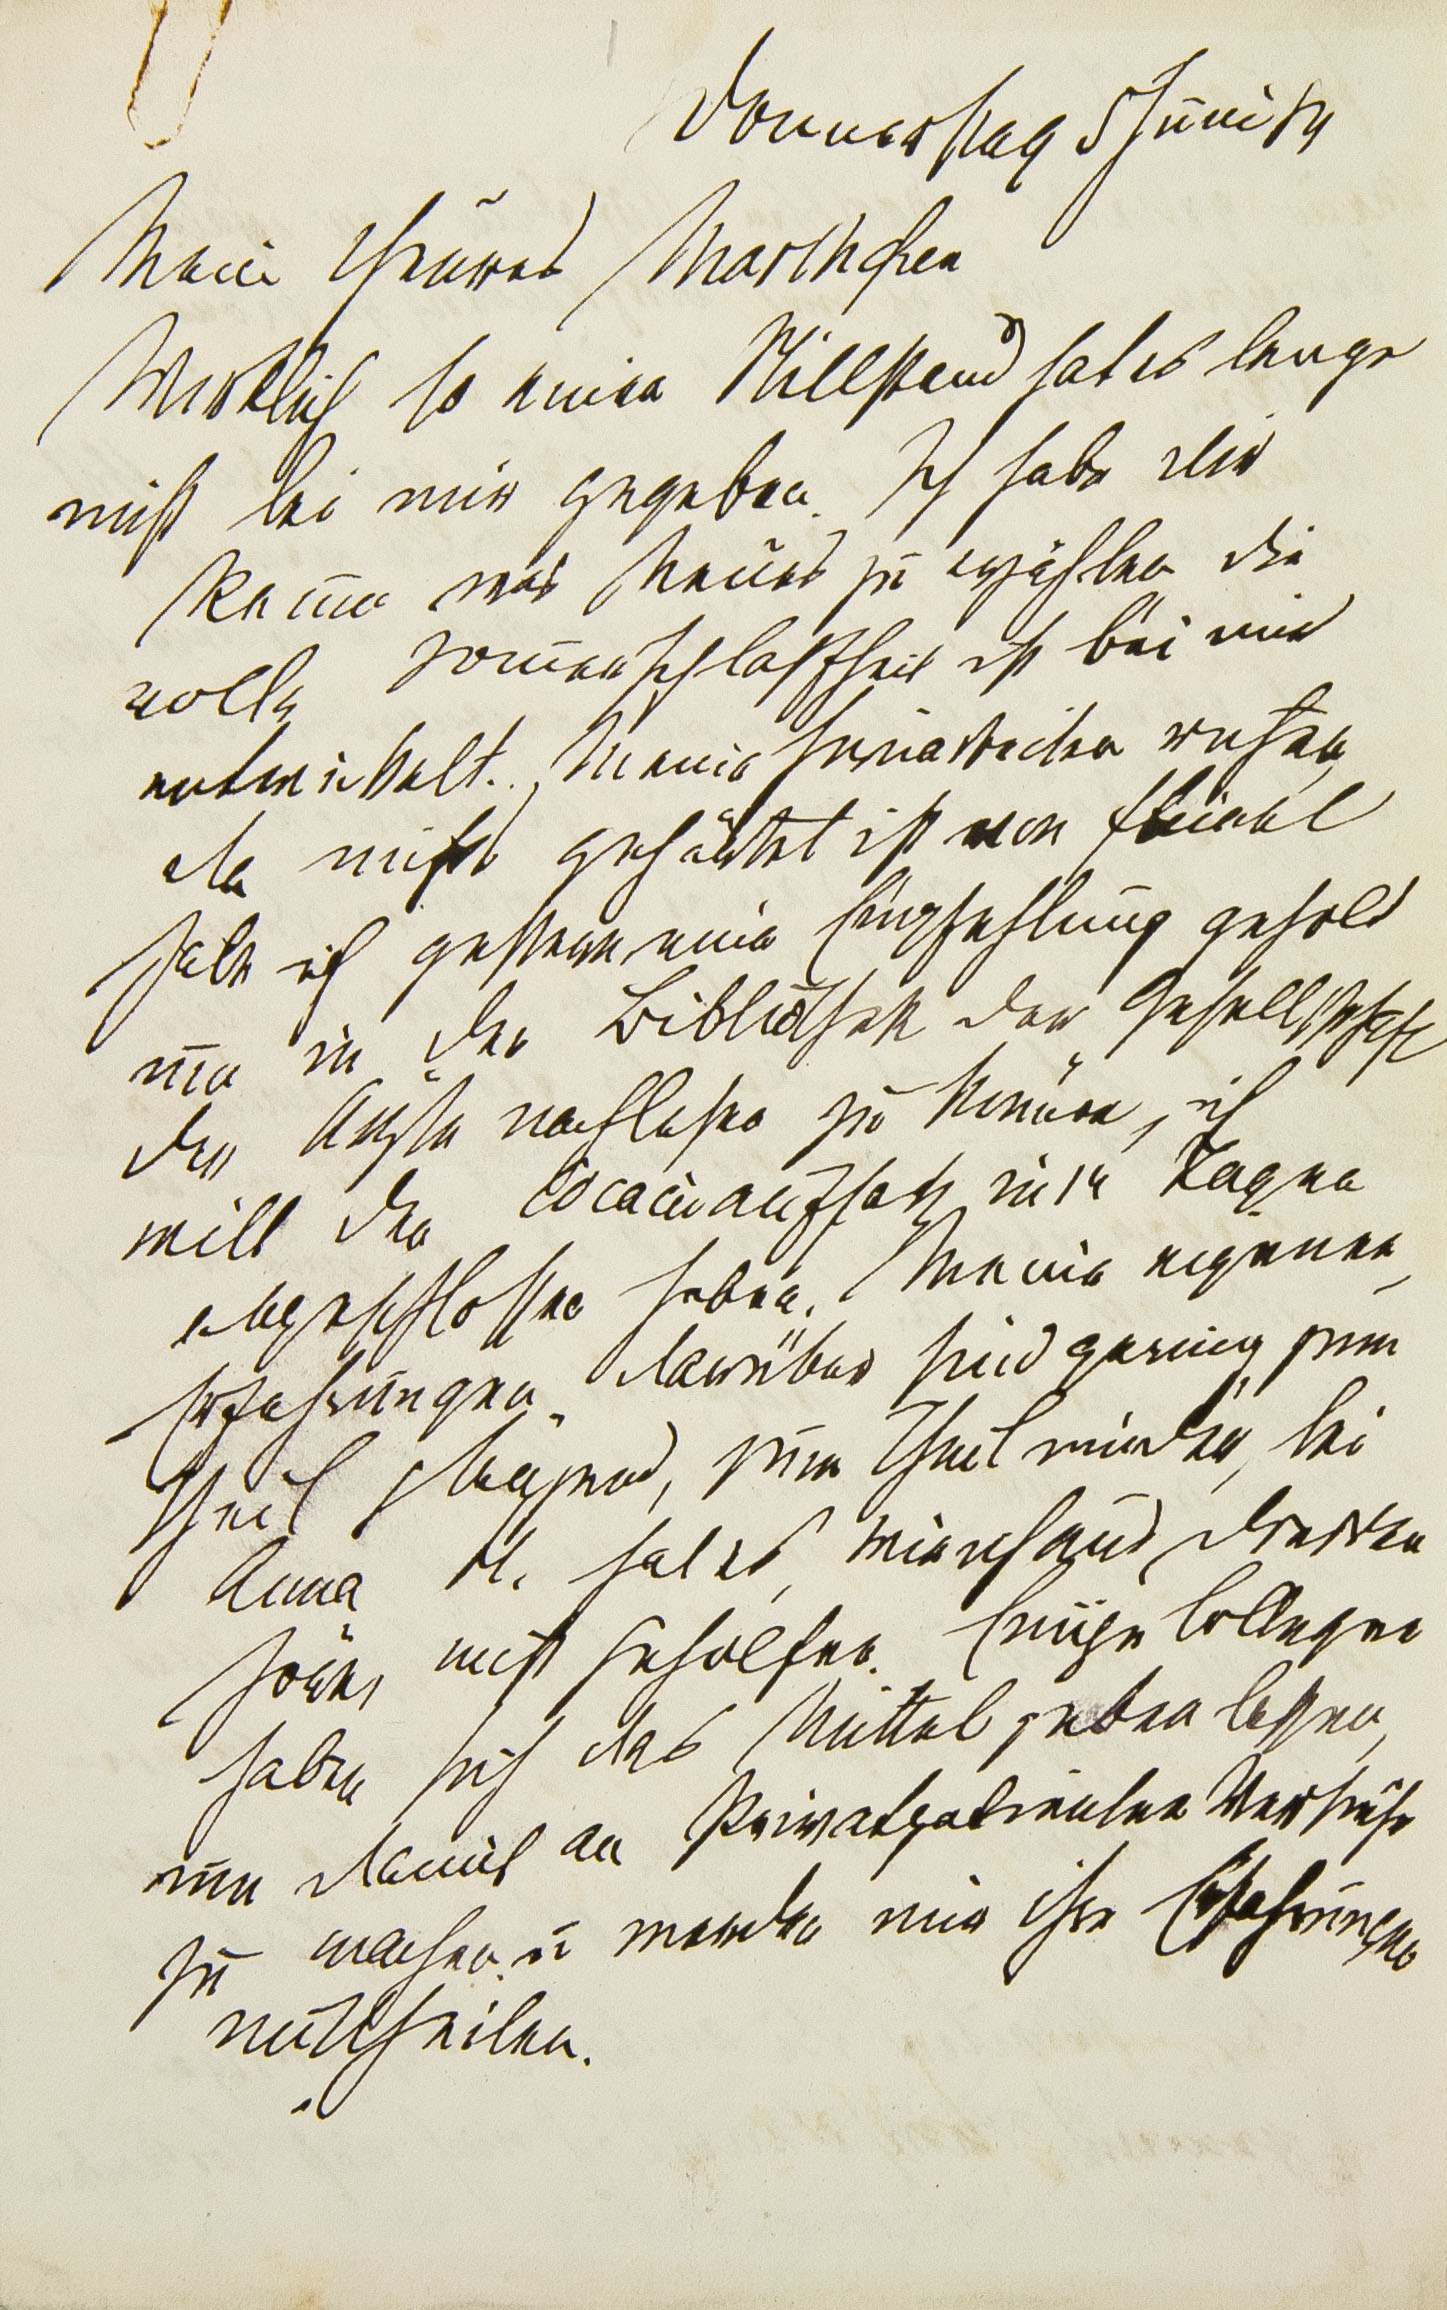 Donnerstag 5 Juni 84
Mein theures Marthchen
Wirklich so einen Stillstand hat es lange
nicht bei mir gegeben. Ich habe dir
kaum was Neues zu erzählen die
volle Sommerschlaffheit ist bei mir
entwickelt. Meine
da nichts ist von
habe ich gestern eine Empfehlung geholt
um in der Bibliothek der Gesellschaft
der Ärzte nachlesen zu können, ich
will den Cocainaufsatz in 14 Tagen
abgeschlossen haben. Meine eigenen
Erfahrungen darüber sind gering zum
Theil glänzend, zum Theil minder, bei
Anna H. hat es,
nicht geholfen. Einige Collegen
haben sich das Mittel geben lassen,
um damit an Privatpatienten Versuche
zu machen u werden mir ihre Erfahrungen
mittheilen.